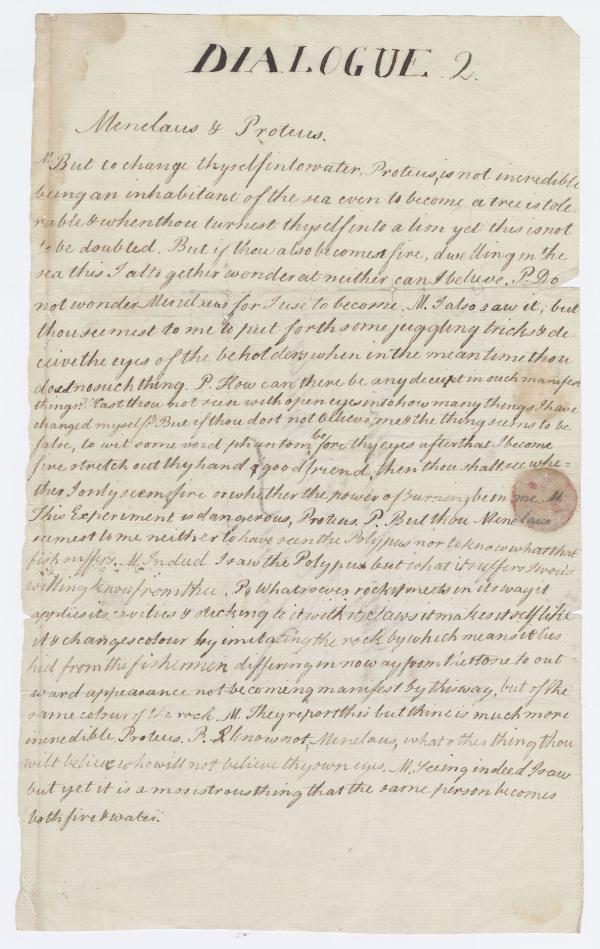 DIALOGUE 2.
Menelaus & Proteus.
M. But to change thyself into water, Proteus, is not incredible
being an inhabitant of the sea even to become a tree is tole-
rable & when thou turnest thyself into a lion yet this is not
to be doubted. But if thou also becomest fire, dwelling in the
sea this I altogether wonder at neither can I believe. P. Do
not wonder Menelaus for I use to become. M. I also saw it; but
thou seemest to me to put forth some juggling tricks & de-
ceive the eyes of the beholders when in the mean time thou
dost no such thing. P. How can there be any deceipt in such manifest
things? Hast thou not seen with open eyes into how many things I have
changed myself? But if thou dost not believe me & the thing seems to be
false, to wit some void phantom before thy eyes after that I become
fire stretch out thy hand good friend, then thou shalt see whe-
ther I only seem fire or whether the power of burning be in me. M.
This Experiment is dangerous, Proteus. P. But thou Menelaus
seemest to me neither to have seen the Polypus nor to know what that
fish suffers. M. Indeed I saw the Polypus but what it suffers I would
willing know from thee. P. Whatsoever rock it meets in its way it
applies its cavities & sticking to it with its claws it makes itself like
it & changes colour by imitating the rock by which means it lies
hid from the fishermen differing in no way from the stone to out-
ward appearance not becoming manifest by this way, but of the
same colour of the rock. M. They report this but thine is much more
incredible Proteus. P. I know not, Menelaus, what other thing thou
wilt believe who will not believe thy own eyes. M. Seeing indeed I saw
but yet it is a monstrous thing that the same person becomes
both fire & water.